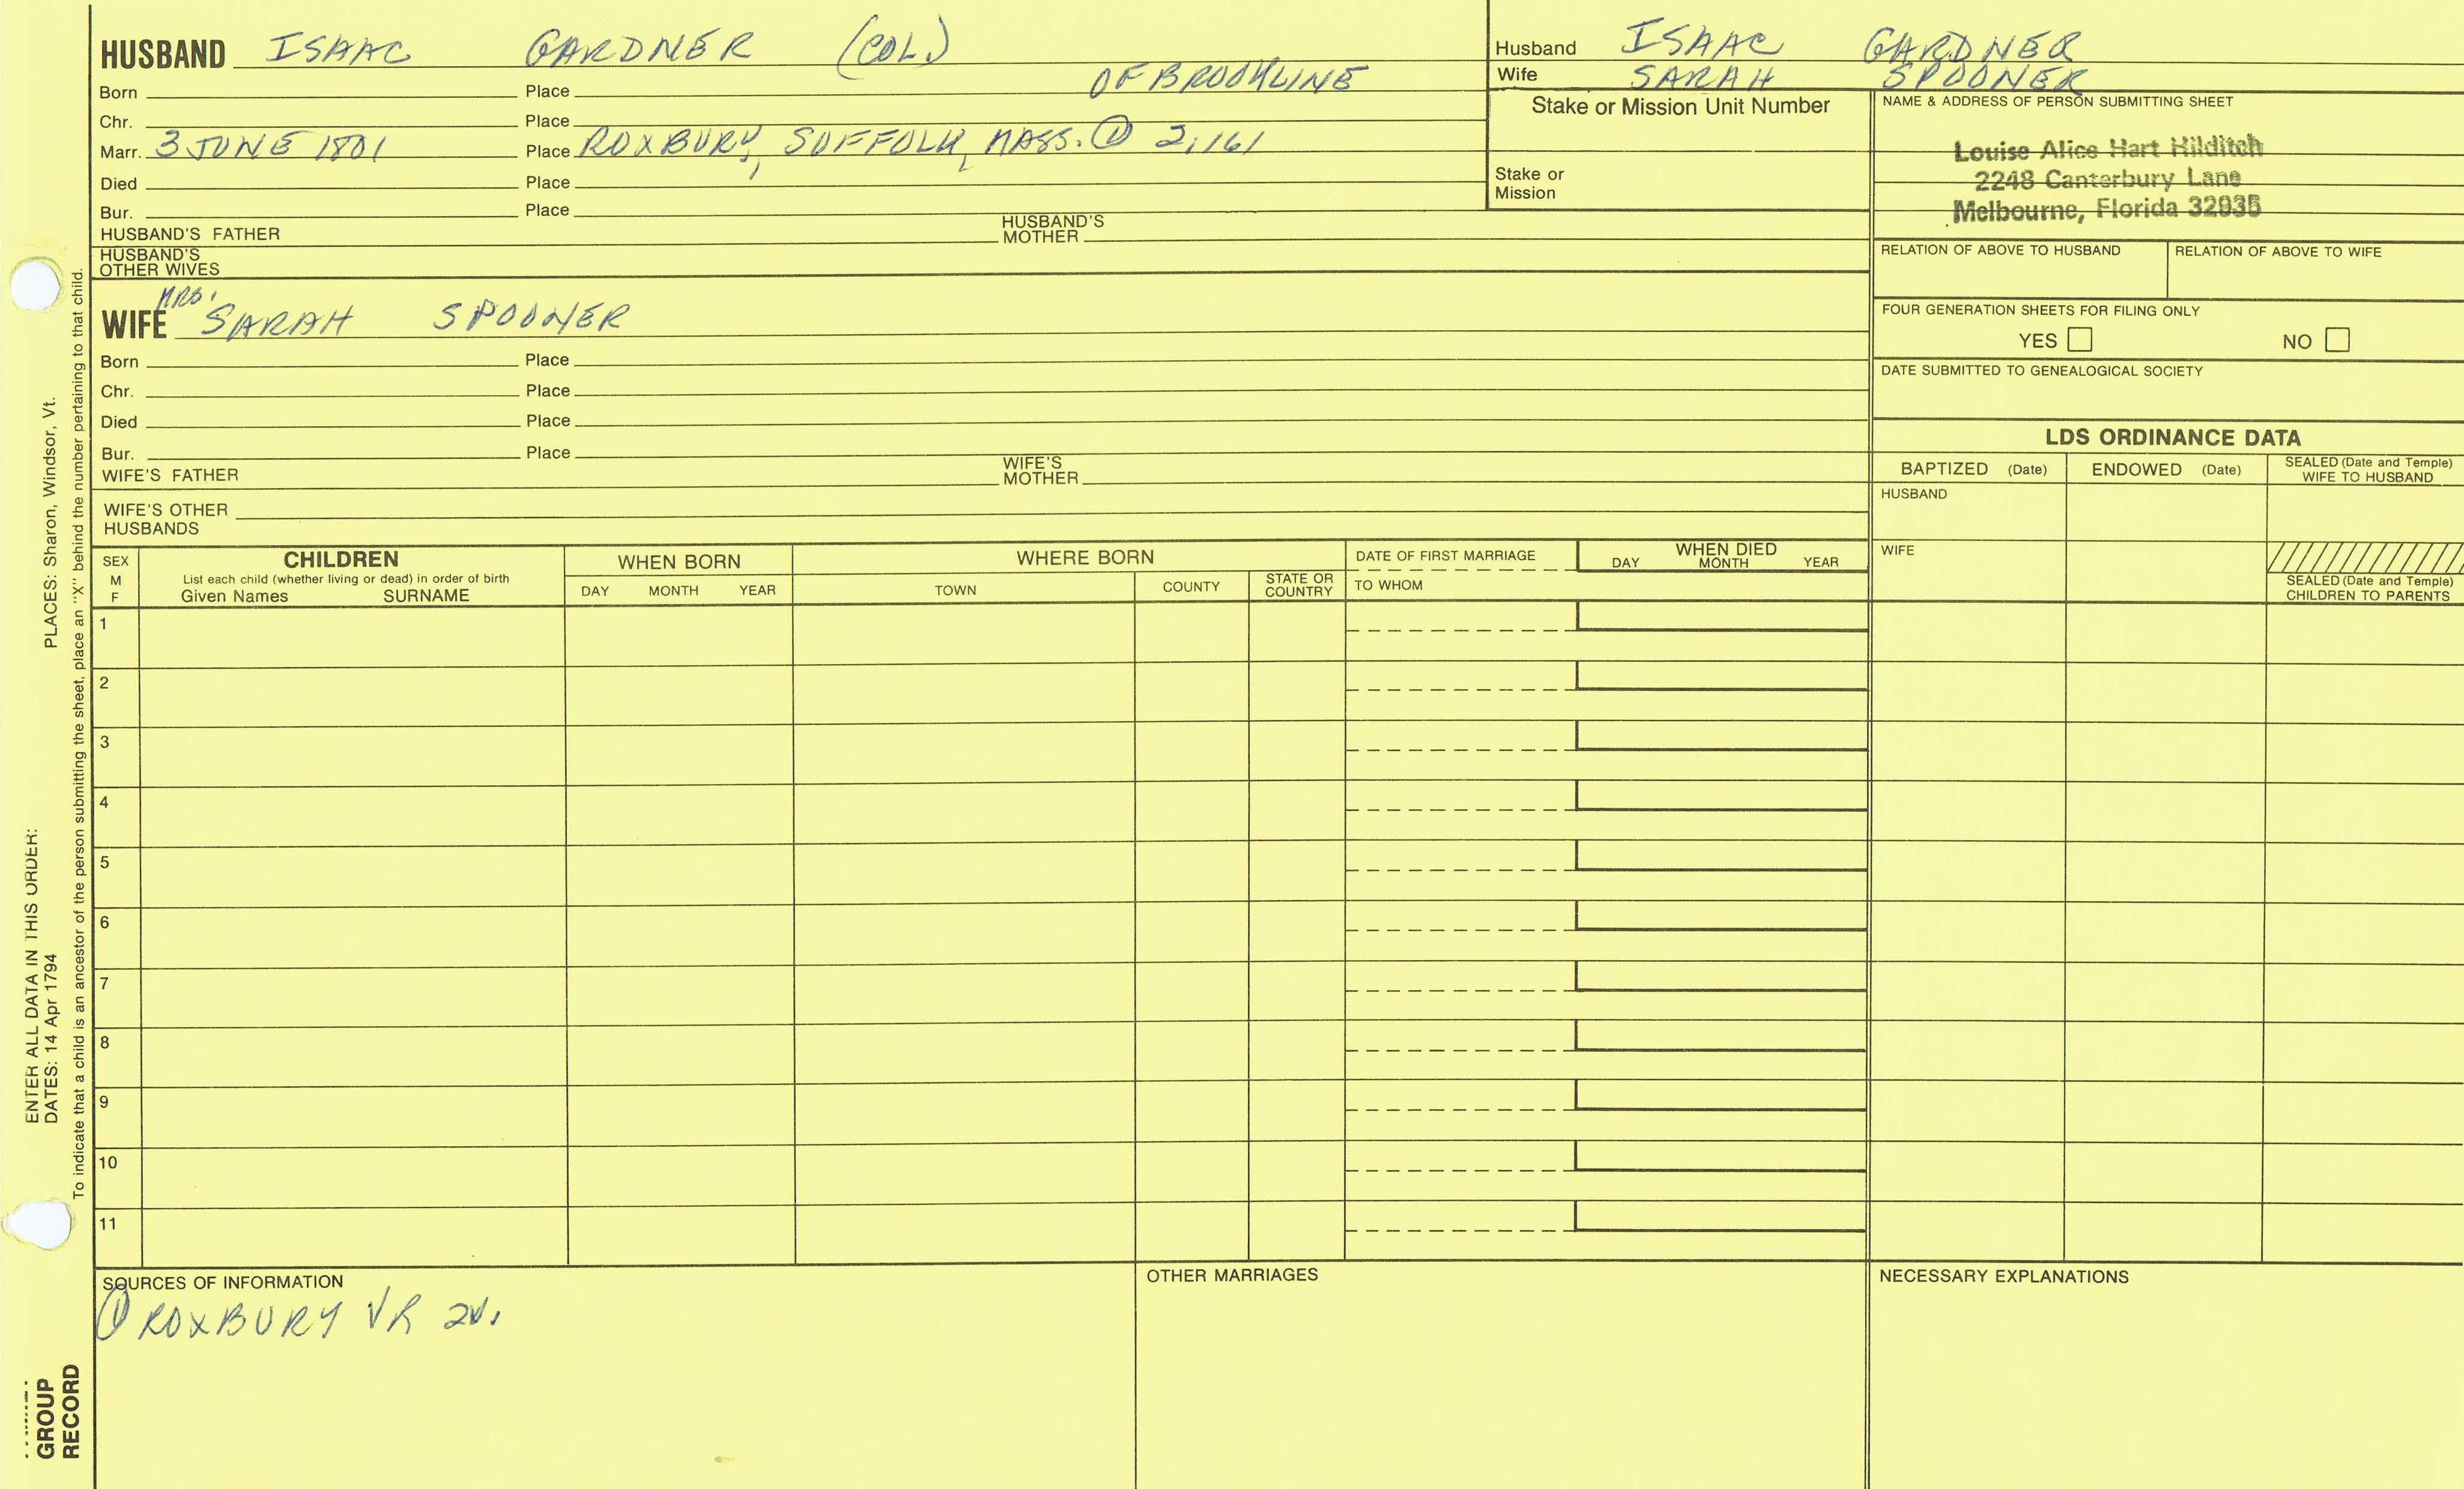 HUSBAND ISAAC GARDNER (COL)
OF BROOKLINE
Born Place
Chr. Place
Marr. 3 JUNE 1801 Place ROXBURY, SUFFOLK, MASS. ① 2:161
Died Place
Bur. Place
HUSBAND'S FATHER HUSBAND'S MOTHER
HUSBAND'S OTHER WIVES
MRS.
WIFE SARAH SPOONER
Born Place
Chr. Place
Died Place
Bur. Place
WIFE'S FATHER WIFE'S MOTHER
WIFE'S OTHER HUSBANDS
Husband ISAAC GARDNER
Wife SARAH SPOONER
Stake or Mission Unit Number
Stake or Mission
NAME & ADDRESS OF PERSON SUBMITTING SHEET
Louise Alice Hart Hilditch
2248 Canterbury Lane
Melbourne, Florida 32935
RELATION OF ABOVE TO HUSBAND RELATION OF ABOVE TO WIFE
FOUR GENERATION SHEETS FOR FILING ONLY
YES NO
DATE SUBMITTED TO GENEALOGICAL SOCIETY
LDS ORDINANCE DATA
BAPTIZED (Date) ENDOWED (Date) SEALED (Date and Temple) WIFE TO HUSBAND
HUSBAND
WIFE
SEALED (Date and Temple) CHILDREN TO PARENTS
SEX M F
CHILDREN
List each child (whether living or dead) in order of birth
Given Names SURNAME
WHEN BORN
DAY MONTH YEAR
WHERE BORN
TOWN COUNTY STATE OR COUNTRY
DATE OF FIRST MARRIAGE
TO WHOM
WHEN DIED
DAY MONTH YEAR
1
2
3
4
5
6
7
8
9
10
11
SOURCES OF INFORMATION
① ROXBURY VR 2v.
OTHER MARRIAGES
NECESSARY EXPLANATIONS
ENTER ALL DATA IN THIS ORDER:
DATES: 14 Apr 1794 PLACES: Sharon, Windsor, Vt.
To indicate that a child is an ancestor of the person submitting the sheet, place an "X" behind the number pertaining to that child.
GROUP
RECORD